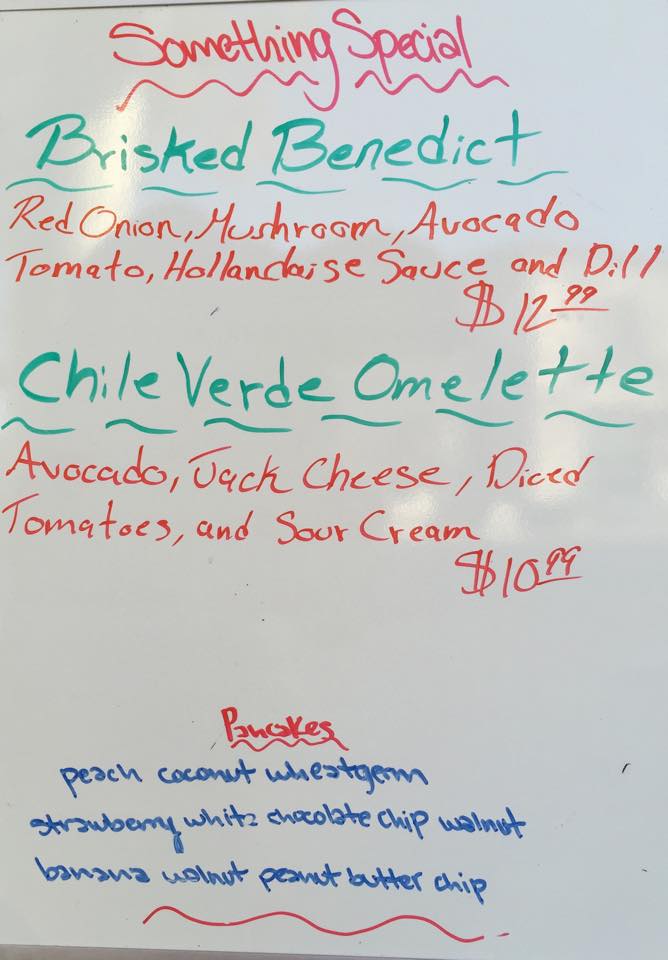 Something Special
Brisked Benedict
Red Onion, Mushroom, Avocado
Tomato, Hollandaise Sauce and Dill
$12.99
Chile Verde Omelette
Avocado, Jack Cheese, Diced
Tomatoes, and Sour Cream
$10.99
Pancakes
peach coconut wheatgerm
strawberry white chocolate chip walnut
banana walnut peanut butter chip